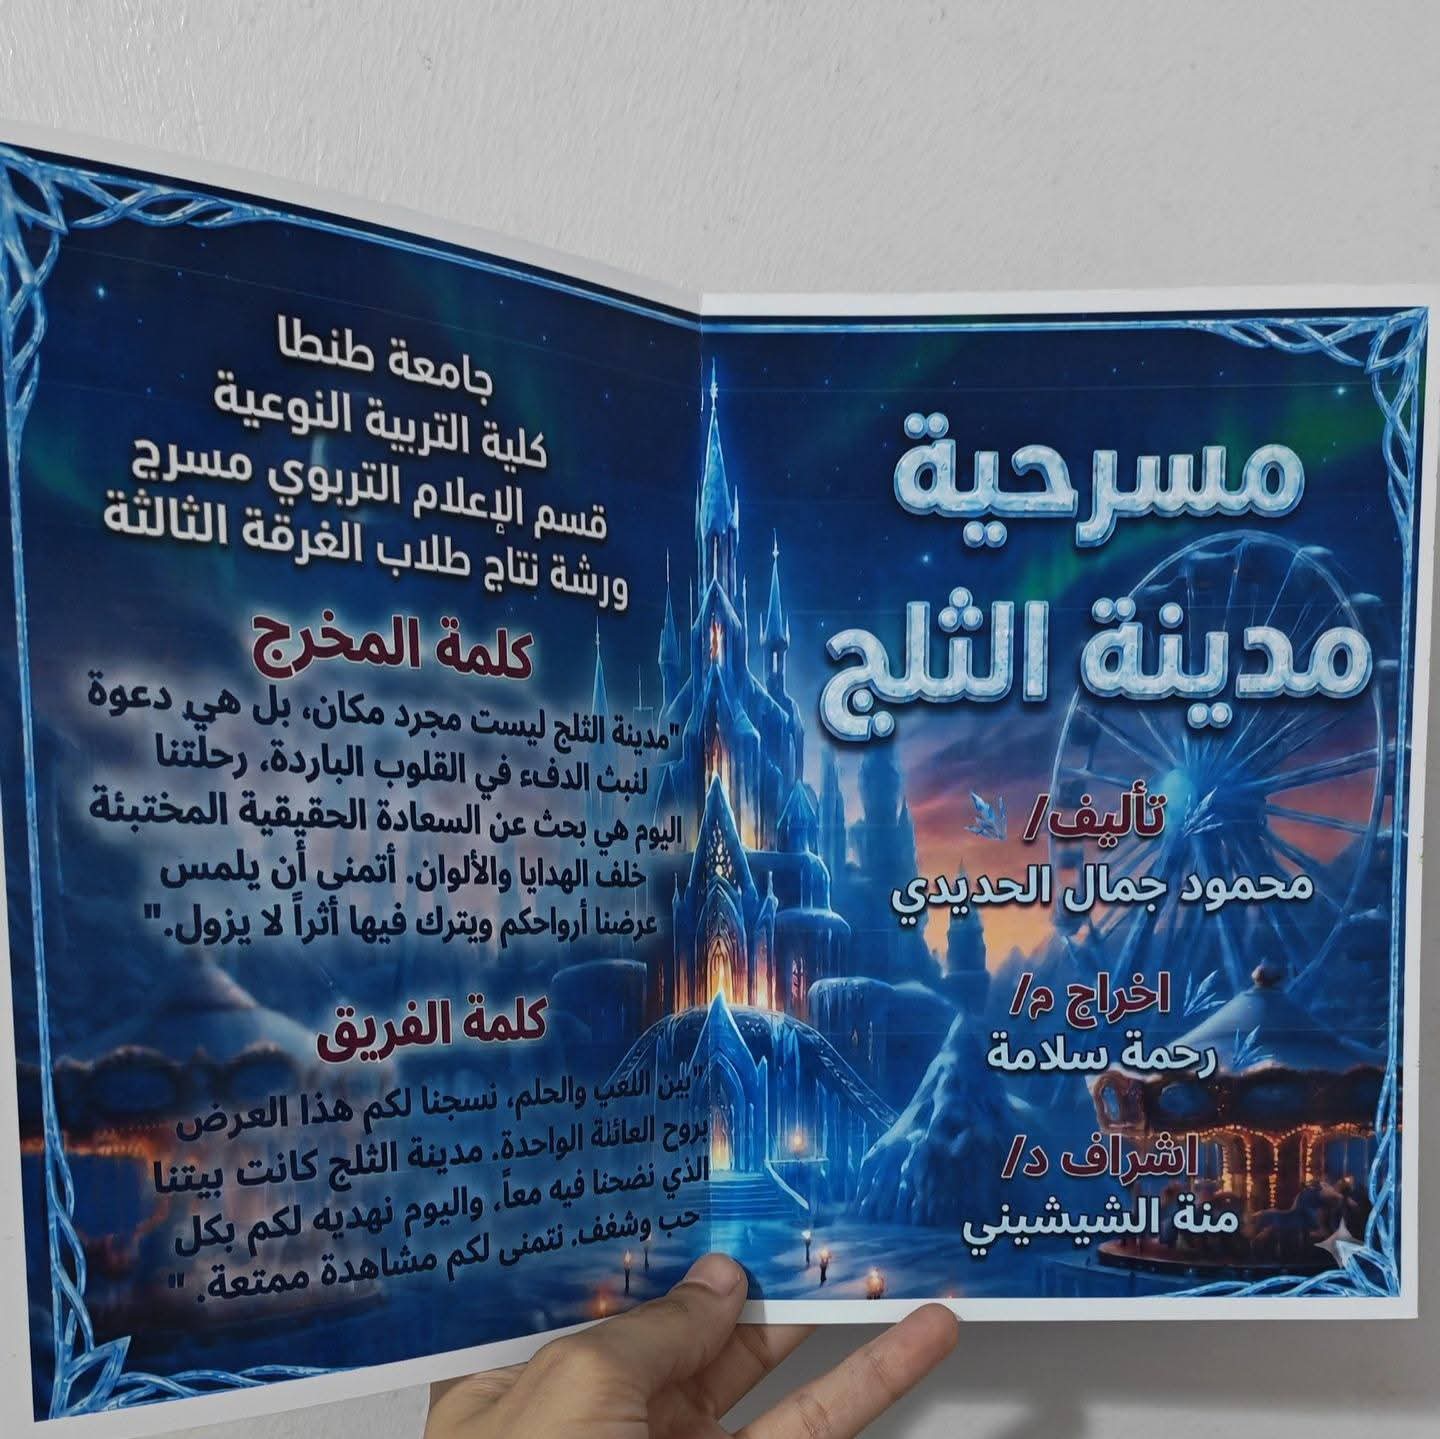 مسرحية
مدينة الثلج
تأليف/
محمود جمال الحديدي
اخراج م/
رحمة سلامة
اشراف د/
منة الشيشيني
جامعة طنطا
كلية التربية النوعية
قسم الإعلام التربوي مسرح
ورشة نتاج طلاب الغرقة الثالثة
كلمة المخرج
"مدينة الثلج ليست مجرد مكان، بل هي دعوة
لنبث الدفء في القلوب الباردة، رحلتنا
اليوم هي بحث عن السعادة الحقيقية المختبئة
خلف الهدايا والألوان. أتمنى أن يلمس
عرضنا أرواحكم ويترك فيها أثراً لا يزول."
كلمة الفريق
"بين اللعب والحلم، نسجنا لكم هذا العرض
بروح العائلة الواحدة. مدينة الثلج كانت بيتنا
الذي نضحنا فيه معاً، واليوم نهديه لكم بكل
حب وشغف. نتمنى لكم مشاهدة ممتعة. "